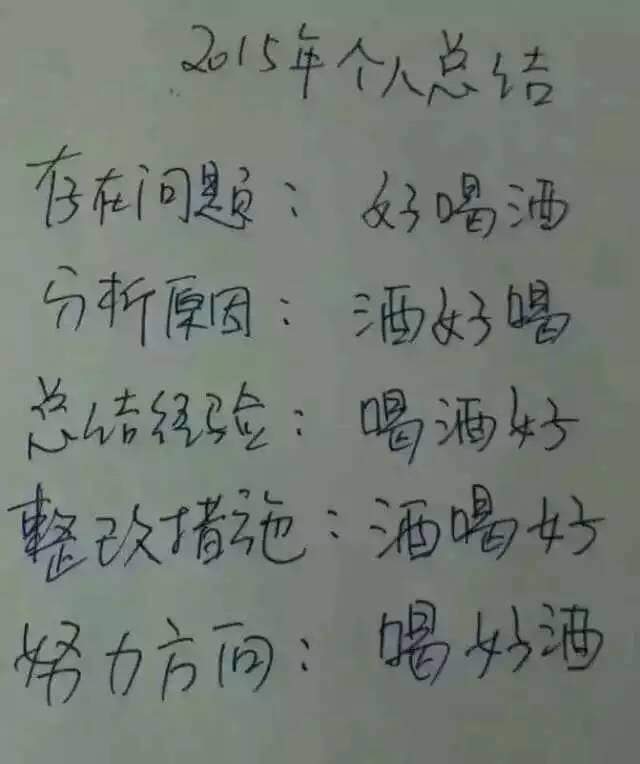 2015年个人总结
存在问题：好喝酒
分析原因：酒好喝
总结经验：喝酒好
整改措施：酒喝好
努力方向：喝好酒